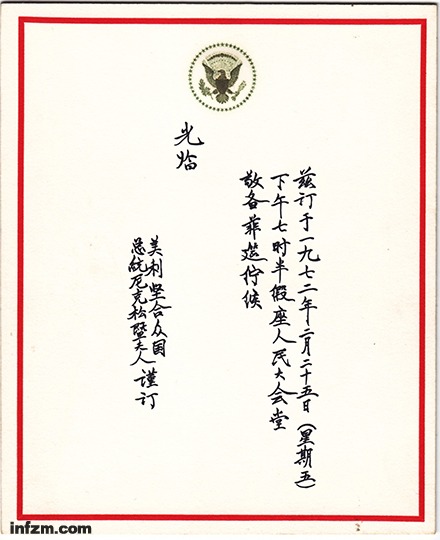 兹订于一九七二年二月二十五日（星期五）
下午七时半假座人民大会堂
敬备菲筵伫候
光临
美利坚合众国
总统尼克松暨夫人 谨订
infzm.com